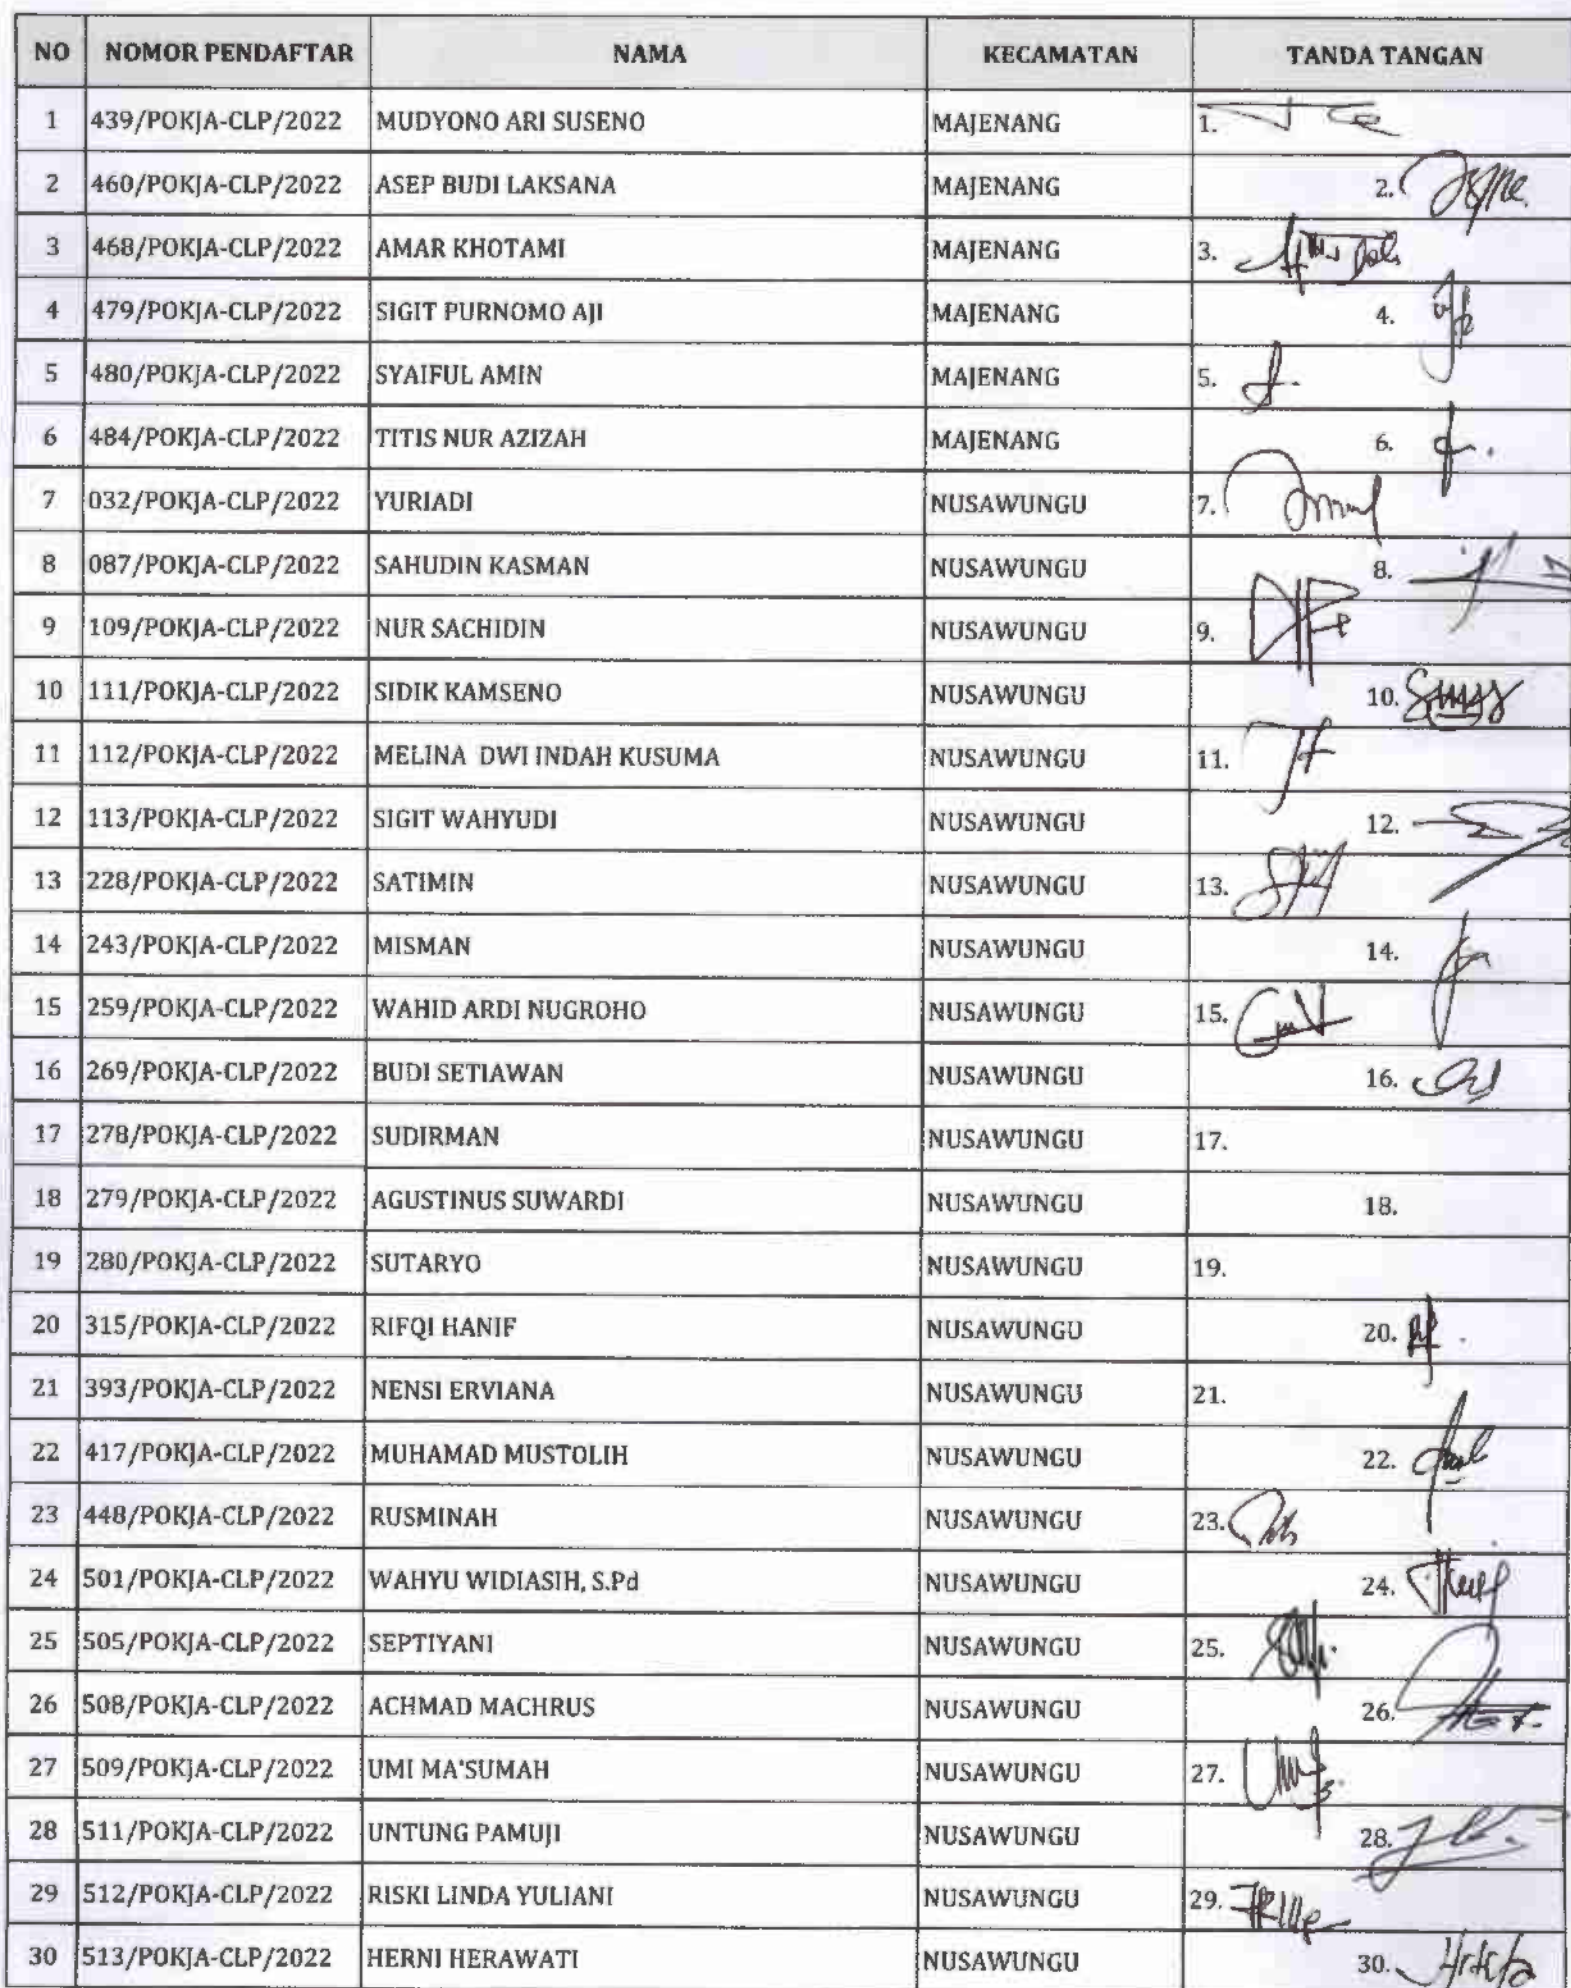 NO NOMOR PENDAFTAR NAMA KECAMATAN TANDA TANGAN
1 439/POKJA-CLP/2022 MUDYONO ARI SUSENO MAJENANG 1.
2 460/POKJA-CLP/2022 ASEP BUDI LAKSANA MAJENANG 2.
3 468/POKJA-CLP/2022 AMAR KHOTAMI MAJENANG 3.
4 479/POKJA-CLP/2022 SIGIT PURNOMO AJI MAJENANG 4.
5 480/POKJA-CLP/2022 SYAIFUL AMIN MAJENANG 5.
6 484/POKJA-CLP/2022 TITIS NUR AZIZAH MAJENANG 6.
7 032/POKJA-CLP/2022 YURIADI NUSAWUNGU 7.
8 087/POKJA-CLP/2022 SAHUDIN KASMAN NUSAWUNGU 8.
9 109/POKJA-CLP/2022 NUR SACHIDIN NUSAWUNGU 9.
10 111/POKJA-CLP/2022 SIDIK KAMSENO NUSAWUNGU 10.
11 112/POKJA-CLP/2022 MELINA DWI INDAH KUSUMA NUSAWUNGU 11.
12 113/POKJA-CLP/2022 SIGIT WAHYUDI NUSAWUNGU 12.
13 228/POKJA-CLP/2022 SATIMIN NUSAWUNGU 13.
14 243/POKJA-CLP/2022 MISMAN NUSAWUNGU 14.
15 259/POKJA-CLP/2022 WAHID ARDI NUGROHO NUSAWUNGU 15.
16 269/POKJA-CLP/2022 BUDI SETIAWAN NUSAWUNGU 16.
17 278/POKJA-CLP/2022 SUDIRMAN NUSAWUNGU 17.
18 279/POKJA-CLP/2022 AGUSTINUS SUWARDI NUSAWUNGU 18.
19 280/POKJA-CLP/2022 SUTARYO NUSAWUNGU 19.
20 315/POKJA-CLP/2022 RIFQI HANIF NUSAWUNGU 20.
21 393/POKJA-CLP/2022 NENSI ERVIANA NUSAWUNGU 21.
22 417/POKJA-CLP/2022 MUHAMAD MUSTOLIH NUSAWUNGU 22.
23 448/POKJA-CLP/2022 RUSMINAH NUSAWUNGU 23.
24 501/POKJA-CLP/2022 WAHYU WIDIASIH, S.Pd NUSAWUNGU 24.
25 505/POKJA-CLP/2022 SEPTIYANI NUSAWUNGU 25.
26 508/POKJA-CLP/2022 ACHMAD MACHRUS NUSAWUNGU 26.
27 509/POKJA-CLP/2022 UMI MA'SUMAH NUSAWUNGU 27.
28 511/POKJA-CLP/2022 UNTUNG PAMUJI NUSAWUNGU 28.
29 512/POKJA-CLP/2022 RISKI LINDA YULIANI NUSAWUNGU 29.
30 513/POKJA-CLP/2022 HERNI HERAWATI NUSAWUNGU 30.